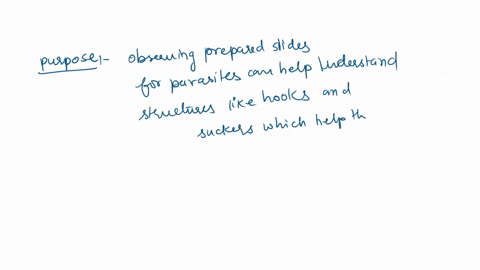 purpose:- observing prepared slides
for parasites can help understand
structures like hooks and
suckers which help th